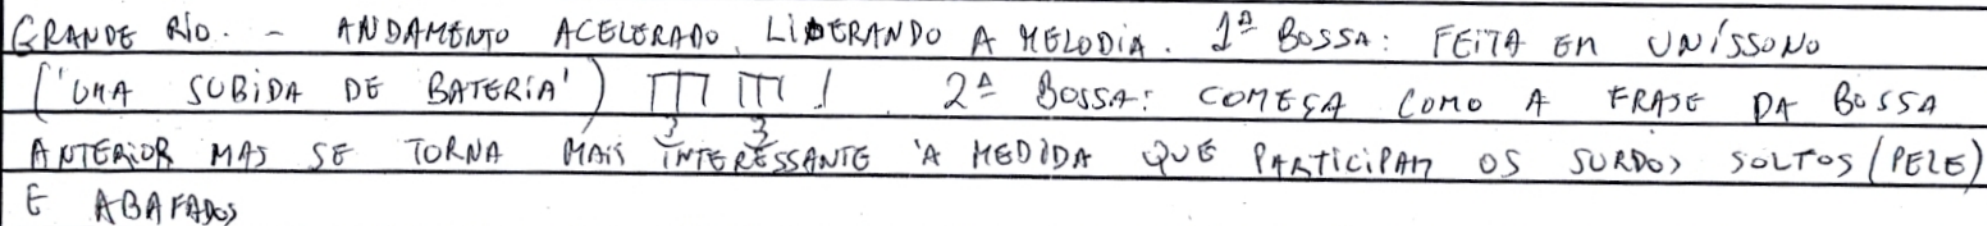 GRANDE RIO. - ANDAMENTO ACELERADO, LIDERANDO A MELODIA. 1ª BOSSA: FEITA EM UNÍSSONO
('UMA SUBIDA DE BATERIA') 3 3 . 2ª BOSSA: COMEÇA COMO A FRASE DA BOSSA
ANTERIOR MAS SE TORNA MAIS INTERESSANTE 'A MEDIDA QUE PARTICIPAM OS SURDOS SOLTOS (PELE)
E ABAFADOS